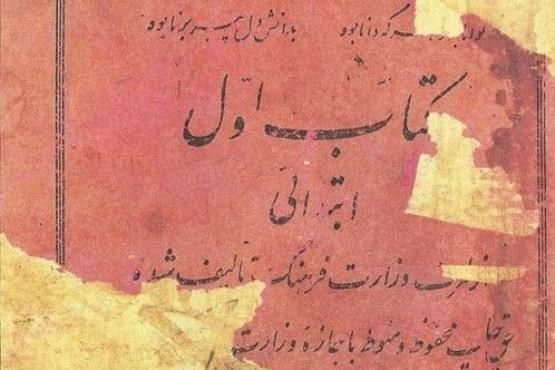 توانا بود هر که دانا بود بدانش دل پیر برنا بود
کتاب اول
ابتدائی
از طرف وزارت فرهنگ تألیف شده
حق چاپ محفوظ و منوط باجازهٔ وزارت